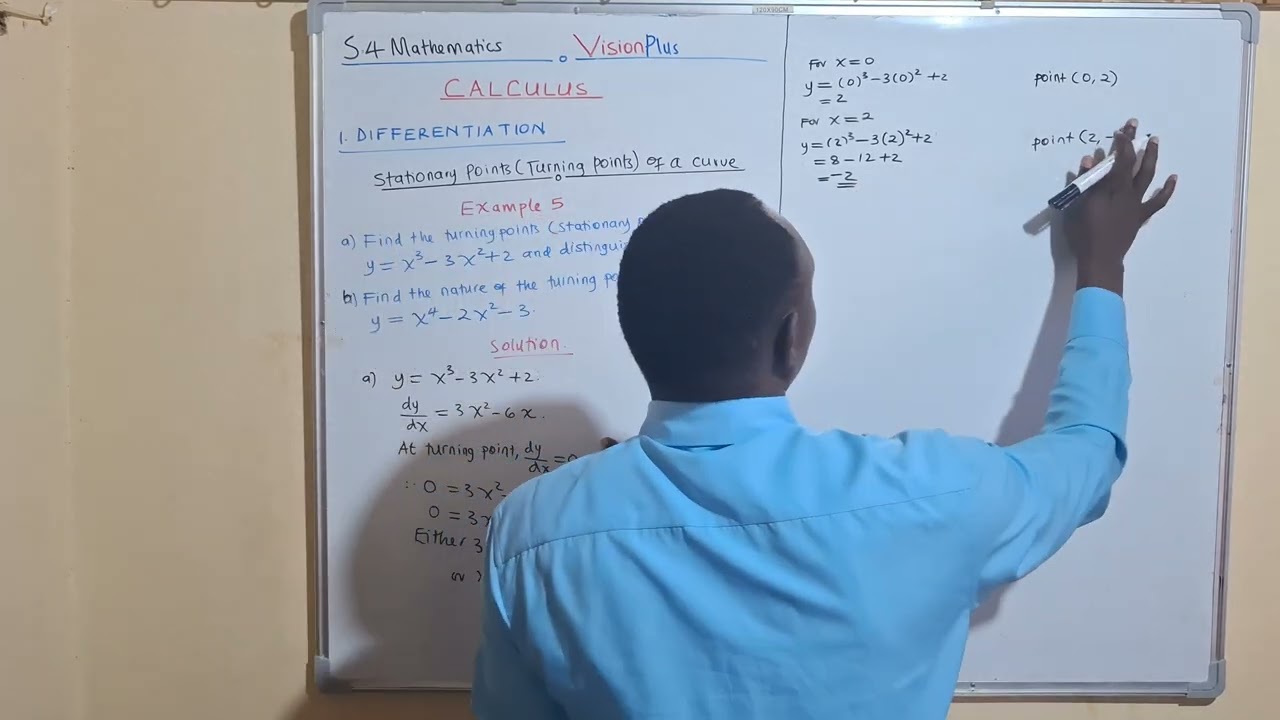 120X90CM
S.4 Mathematics VisionPlus
CALCULUS
1. DIFFERENTIATION
Stationary points (Turning points) of a curve
Example 5
a) Find the turning points (stationary
y = x³ - 3x² + 2 and
b) Find the nature of the turning
y = x⁴ - 2x² - 3.
Solution.
a) y = x³ - 3x² + 2.
dy/dx = 3x² - 6x.
At turning point, dy/dx = 0
∴ 0 = 3x²
0 = 3x
Either 3
or
For x = 0
y = (0)³ - 3(0)² + 2
= 2
point (0, 2)
For x = 2
y = (2)³ - 3(2)² + 2
= 8 - 12 + 2
= -2
point (2, -